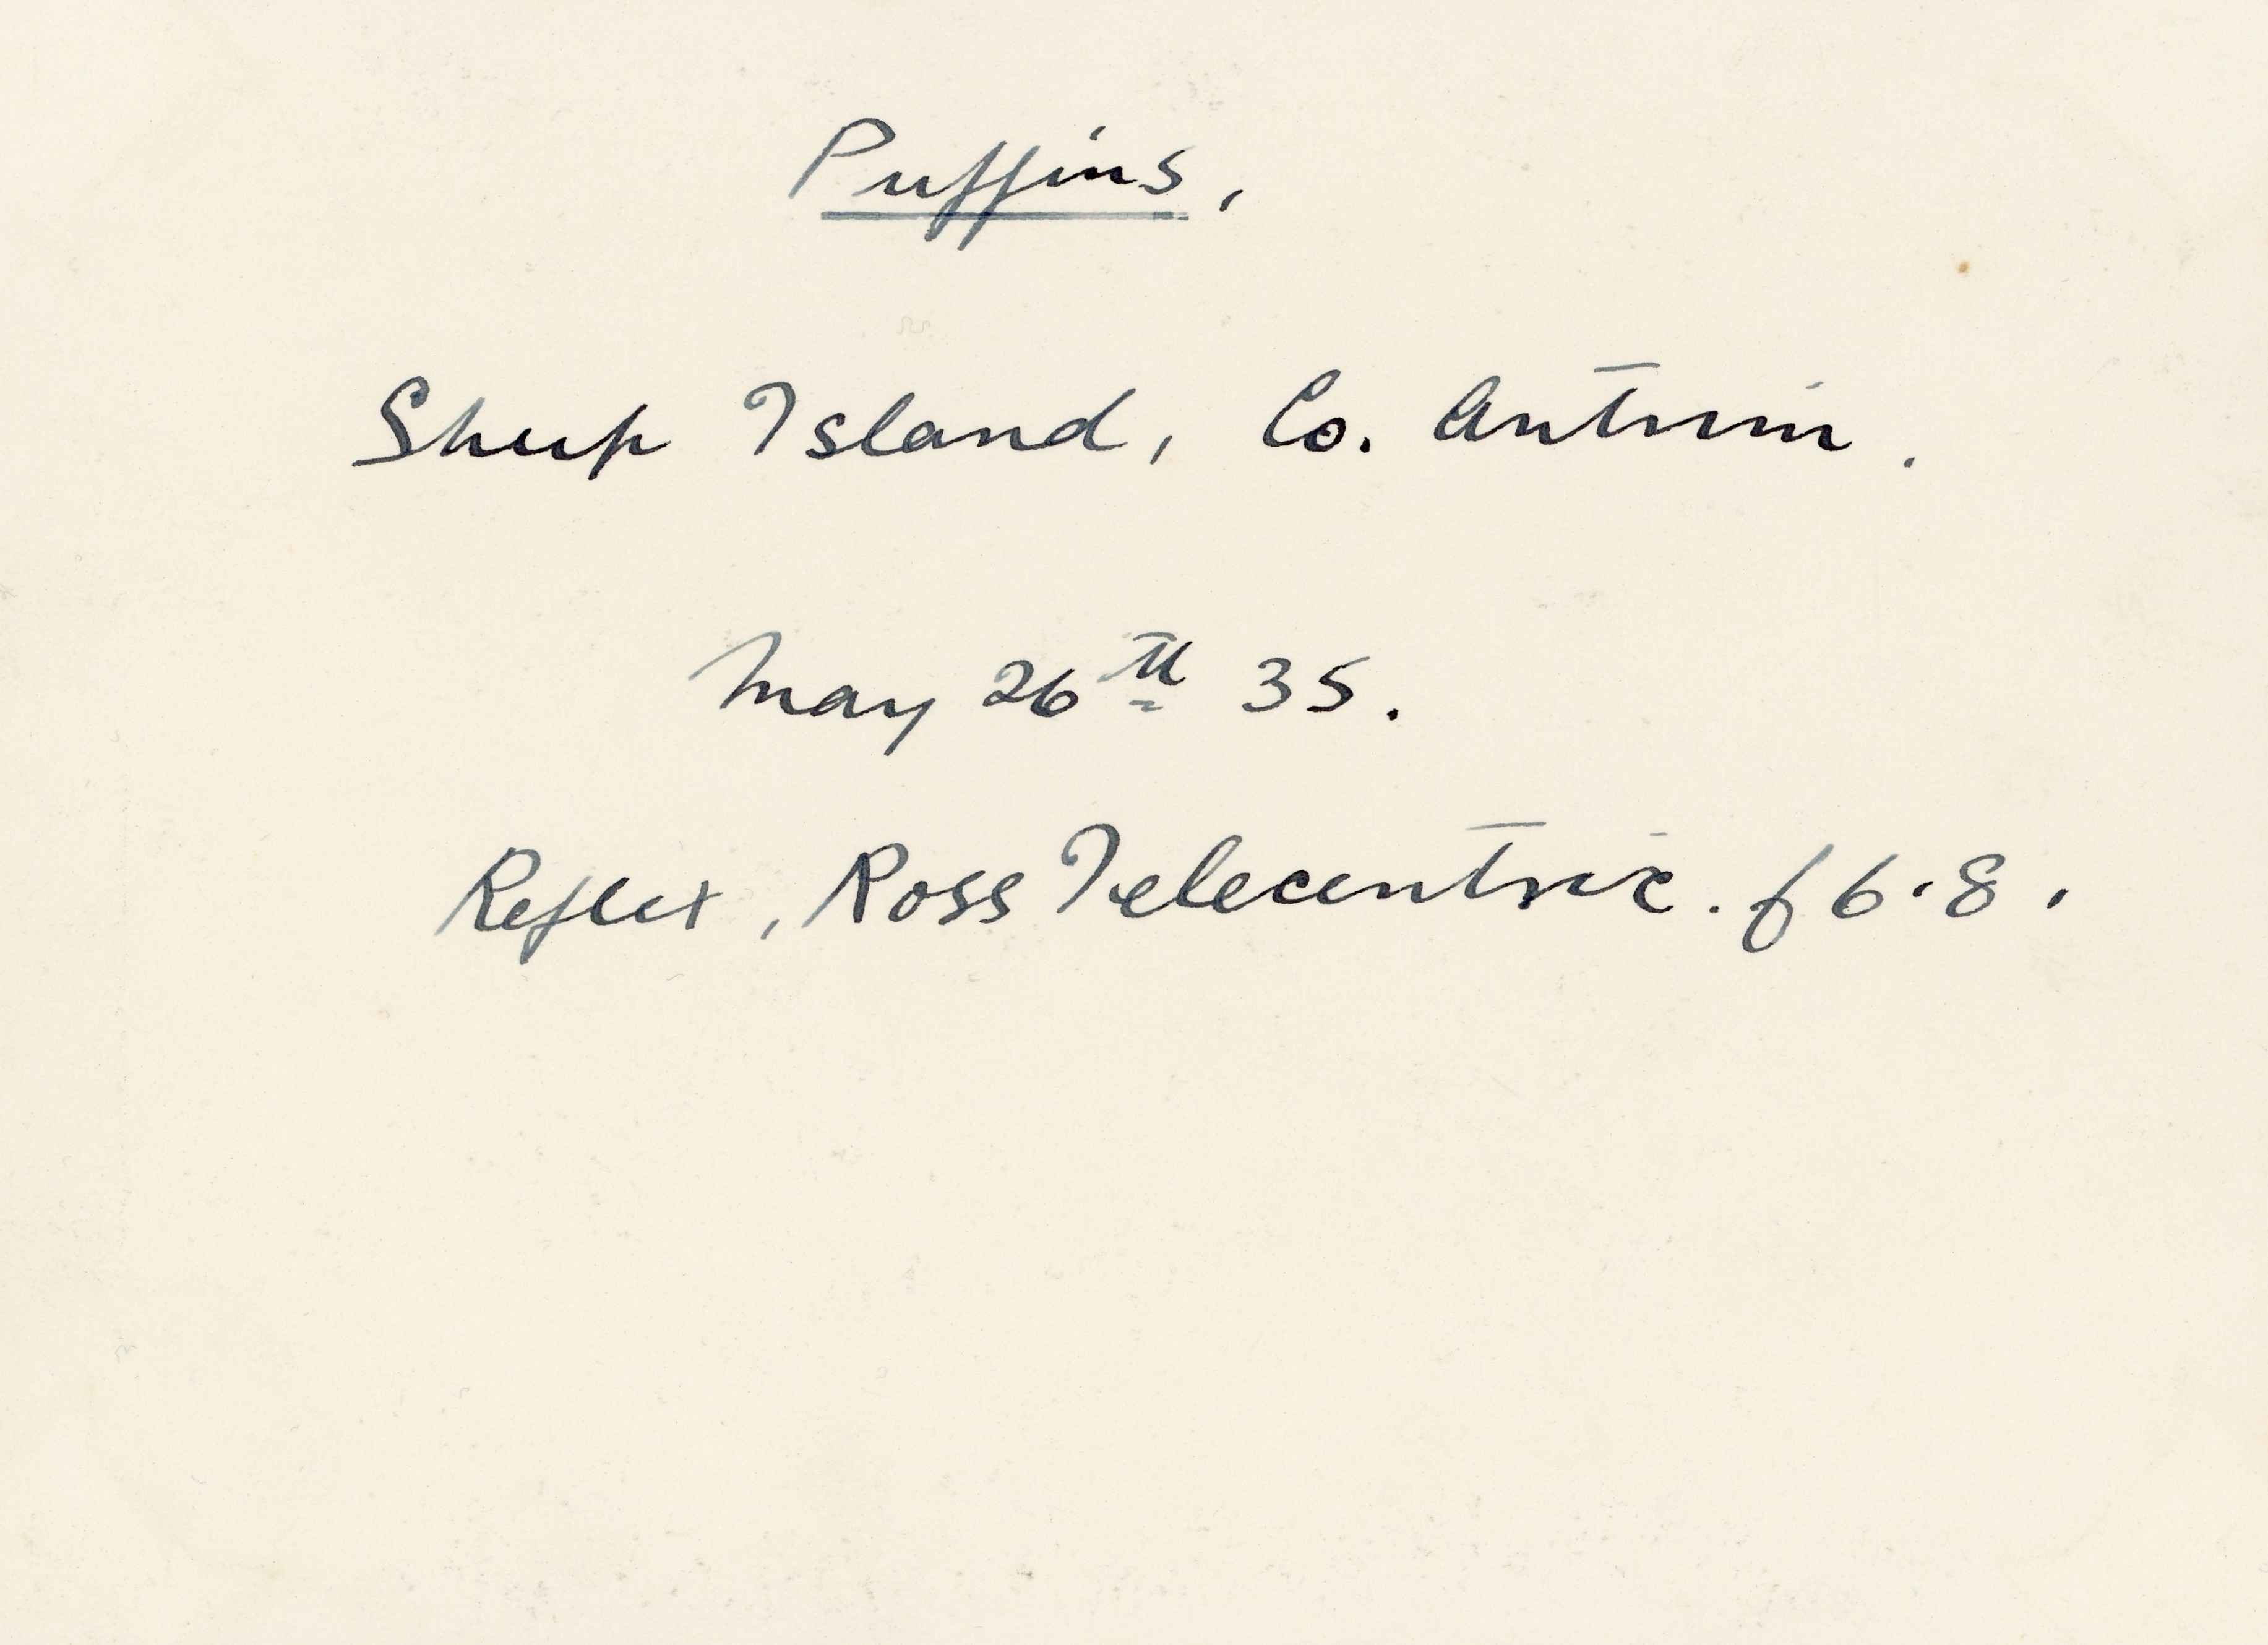 Puffins,
Sheep Island, Co. Antrim.
May 26th 35.
Reflex, Ross Telecentric. f 6.8.